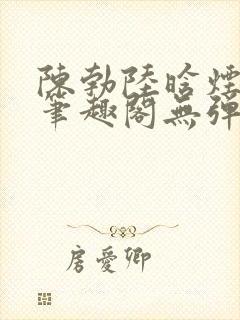 陳勃陸晗煙
筆趣閣無彈
房愛卿